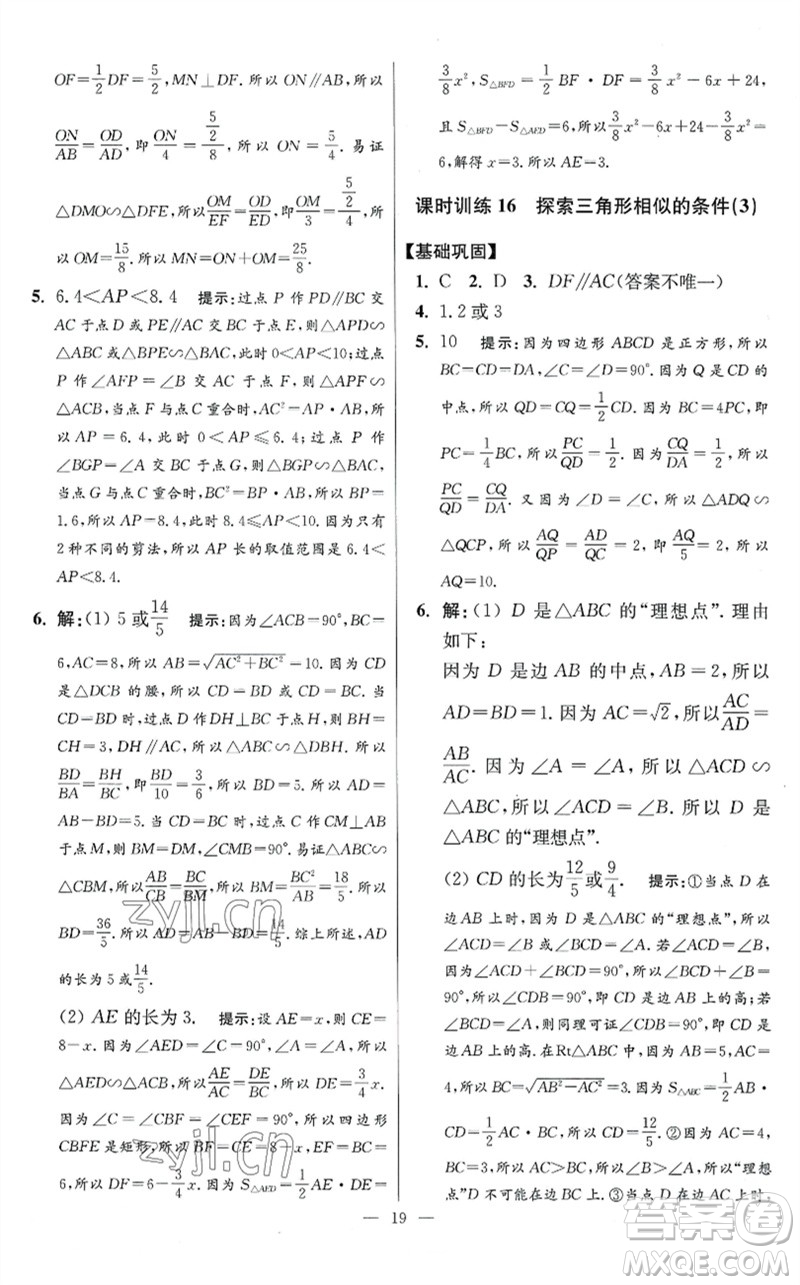 OF=1/2 DF=5/2, MN⊥DF. 所以 ON∥AB, 所以
ON/AB=OD/AD, 即 ON/4=(5/2)/8, 所以 ON=5/4. 易证
△DMO∽△DFE, 所以 OM/EF=OD/ED, 即 OM/3=(5/2)/4, 所
以 OM=15/8. 所以 MN=OM+ON=25/8.
5. 6.4<AP<8.4 提示:过点 P 作 PD∥BC 交
AC 于点 D 或 PE∥AC 交 BC 于点 E,则△APD∽
△ABC 或△BPE∽△BAC,此时 0<AP<10;过点
P 作∠AFP=∠B 交 AC 于点 F,则△APF∽
△ACB,当点 F 与点 C 重合时,AC²=AP·AB,所
以 AP=6.4,此时 0<AP⩽6.4;过点 P 作
∠BGP=∠A 交 BC 于点 G,则△BGP∽△BAC,
当点 G 与点 C 重合时,BC²=BP·AB,所以 BP=
1.6,所以 AP=8.4,此时 8.4⩽AP<10. 因为只有
2 种不同的剪法,所以 AP 长的取值范围是 6.4<
AP<8.4.
6. 解:(1) 5 或 14/5 提示:因为∠ACB=90°,BC=
6,AC=8,所以 AB=√(AC²+BC²)=10. 因为 CD
是△DCB 的腰,所以 CD=BD 或 CD=BC. 当
CD=BD 时,过点 D 作 DH⊥BC 于点 H,则 BH=
CH=3,DH∥AC,所以△ABC∽△DBH. 所以
BD/BA=BH/BC,即 BD/10=3/6,所以 BD=5. 所以 AD=
AB-BD=5. 当 CD=BC 时,过点 C 作 CM⊥AB
于点 M,则 BM=DM,∠CMB=90°. 易证△ABC∽
△CBM,所以 AB/CB=BC/BM,所以 BM=BC²/AB=18/5. 所以
BD=36/5. 所以 AD=AB-BD=14/5. 综上所述,AD
的长为 5 或 14/5.
(2) AE 的长为 3. 提示:设 AE=x,则 CE=
8-x. 因为∠AED=∠C=90°,∠A=∠A,所以
△AED∽△ACB. 所以 AE/AC=DE/BC. 所以 DE=3/4 x.
因为∠C=∠CBF=∠CEF=90°,所以四边形
CBFE 是矩形,所以 BF=CE=8-x,EF=BC=
6,所以 DF=6-3/4 x. 因为 S△AED=1/2 AE·DE=
3/8 x², S△BFD=1/2 BF·DF=3/8 x²-6x+24,
且 S△BFD-S△AED=6,所以 3/8 x²-6x+24-3/8 x²=
6,解得 x=3. 所以 AE=3.
课时训练 16 探索三角形相似的条件(3)
【基础巩固】
1. C 2. D 3. DF∥AC(答案不唯一)
4. 1.2 或 3
5. 10 提示:因为四边形 ABCD 是正方形,所以
BC=CD=DA,∠C=∠D=90°. 因为 Q 是 CD 的
中点,所以 QD=CQ=1/2 CD. 因为 BC=4PC,即
PC=1/4 BC,所以 PC/QD=1/2. 因为 CQ/DA=1/2,所以
PC/QD=CQ/DA. 又因为∠D=∠C,所以△ADQ∽
△QCP,所以 AQ/QP=AD/QC=2,即 AQ/5=2,所以
AQ=10.
6. 解:(1) D 是△ABC 的“理想点”. 理由
如下:
因为 D 是边 AB 的中点,AB=2,所以
AD=BD=1. 因为 AC=√2,所以 AC/AD=
AB/AC. 因为∠A=∠A,所以△ACD∽
△ABC,所以∠ACD=∠B. 所以 D 是
△ABC 的“理想点”.
(2) CD 的长为 12/5 或 9/4. 提示:①当点 D 在
边 AB 上时,因为 D 是△ABC 的“理想点”,所以
∠ACD=∠B 或∠BCD=∠A. 若∠ACD=
∠B,因为∠ACD+∠BCD=90°,所以∠BCD+
∠B=90°,所以∠CDB=90°,即 CD 是边 AB 上的高;若
∠BCD=∠A,则同理可证∠CDB=90°,即 CD 是边
AB 上的高. 在Rt△ABC 中,因为∠ACB=90°,AB=5,
AC=4,所以 BC=√(AB²-AC²)=3. 因为 S△ABC=1/2 AB·
CD=1/2 AC·BC,所以 CD=12/5. ②因为 AC=4,
BC=3,所以 AC>BC,所以∠B>∠A,所以“理想
点”D 不可能在边 BC 上. ③当点 D 在边 AC 上时,
— 19 —
zyjl.cn
zyjl.cn
答案圈
MXQE.COM